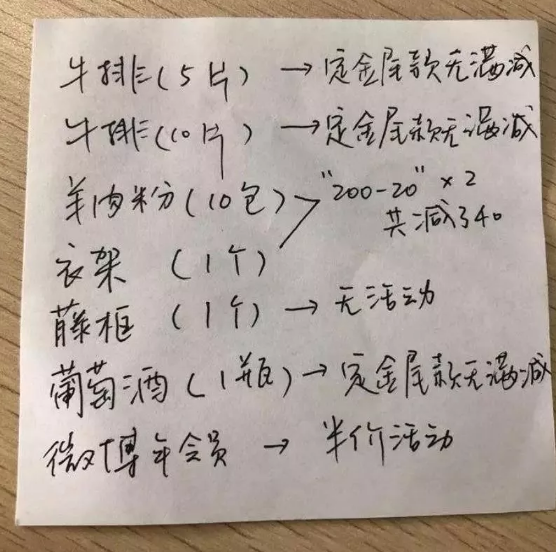 牛排(5片) →定金尾款无满减
牛排(10片) →定金尾款无满减
羊肉粉(10包) "200-20"×2
共减了40
衣架 (1个)
藤框 (1个) → 无活动
葡萄酒(1瓶)→定金尾款无满减
微博年会员 → 半价活动